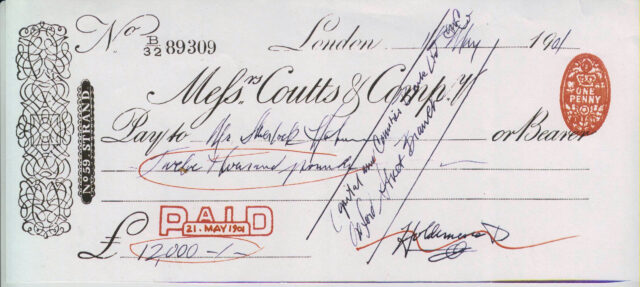 No B/32 89309 London May 1901
ONE PENNY
Messrs Coutts & Compy
No 59, STRAND
Pay to Mr Sherlock Holmes or Bearer
Twelve Thousand pounds
Capital and Counties Bank Ltd
Oxford Street Branch
PAID
21-MAY-1901
£ 12,000-/-